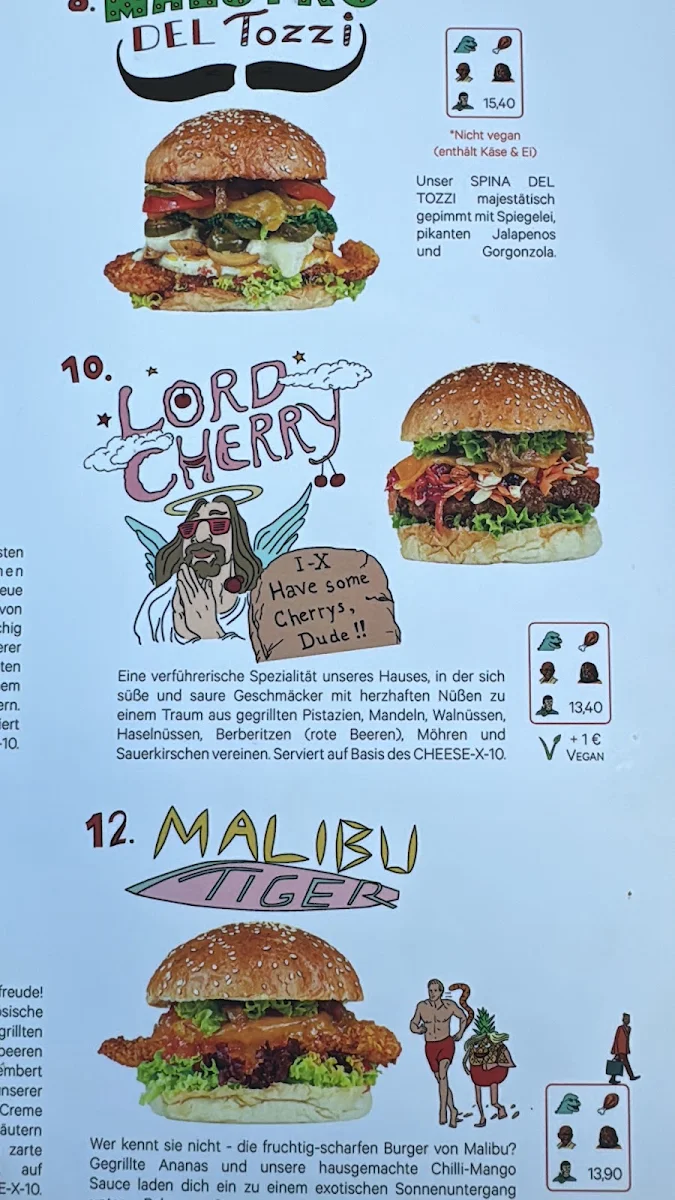 8. MAESTRO
DEL TOZZi
15,40
*Nicht vegan
(enthält Käse & Ei)
Unser SPINA DEL
TOZZI majestätisch
gepimmt mit Spiegelei,
pikanten Jalapenos
und Gorgonzola.
10.
LORD
CHERRY
I-X
Have some
Cherrys,
Dude!!
Eine verführerische Spezialität unseres Hauses, in der sich
süße und saure Geschmäcker mit herzhaften Nüßen zu
einem Traum aus gegrillten Pistazien, Mandeln, Walnüssen,
Haselnüssen, Berberitzen (rote Beeren), Möhren und
Sauerkirschen vereinen. Serviert auf Basis des CHEESE-X-10.
13,40
+ 1 €
VEGAN
sten
eue
von
chig
erer
ten
em
ern.
iert
-10.
12. MALIBU
TIGER
13,90
Wer kennt sie nicht - die fruchtig-scharfen Burger von Malibu?
Gegrillte Ananas und unsere hausgemachte Chilli-Mango
Sauce laden dich ein zu einem exotischen Sonnenuntergang
freude!
ösische
grillten
beeren
embert
unserer
Creme
äutern
zarte
auf
E-X-10.